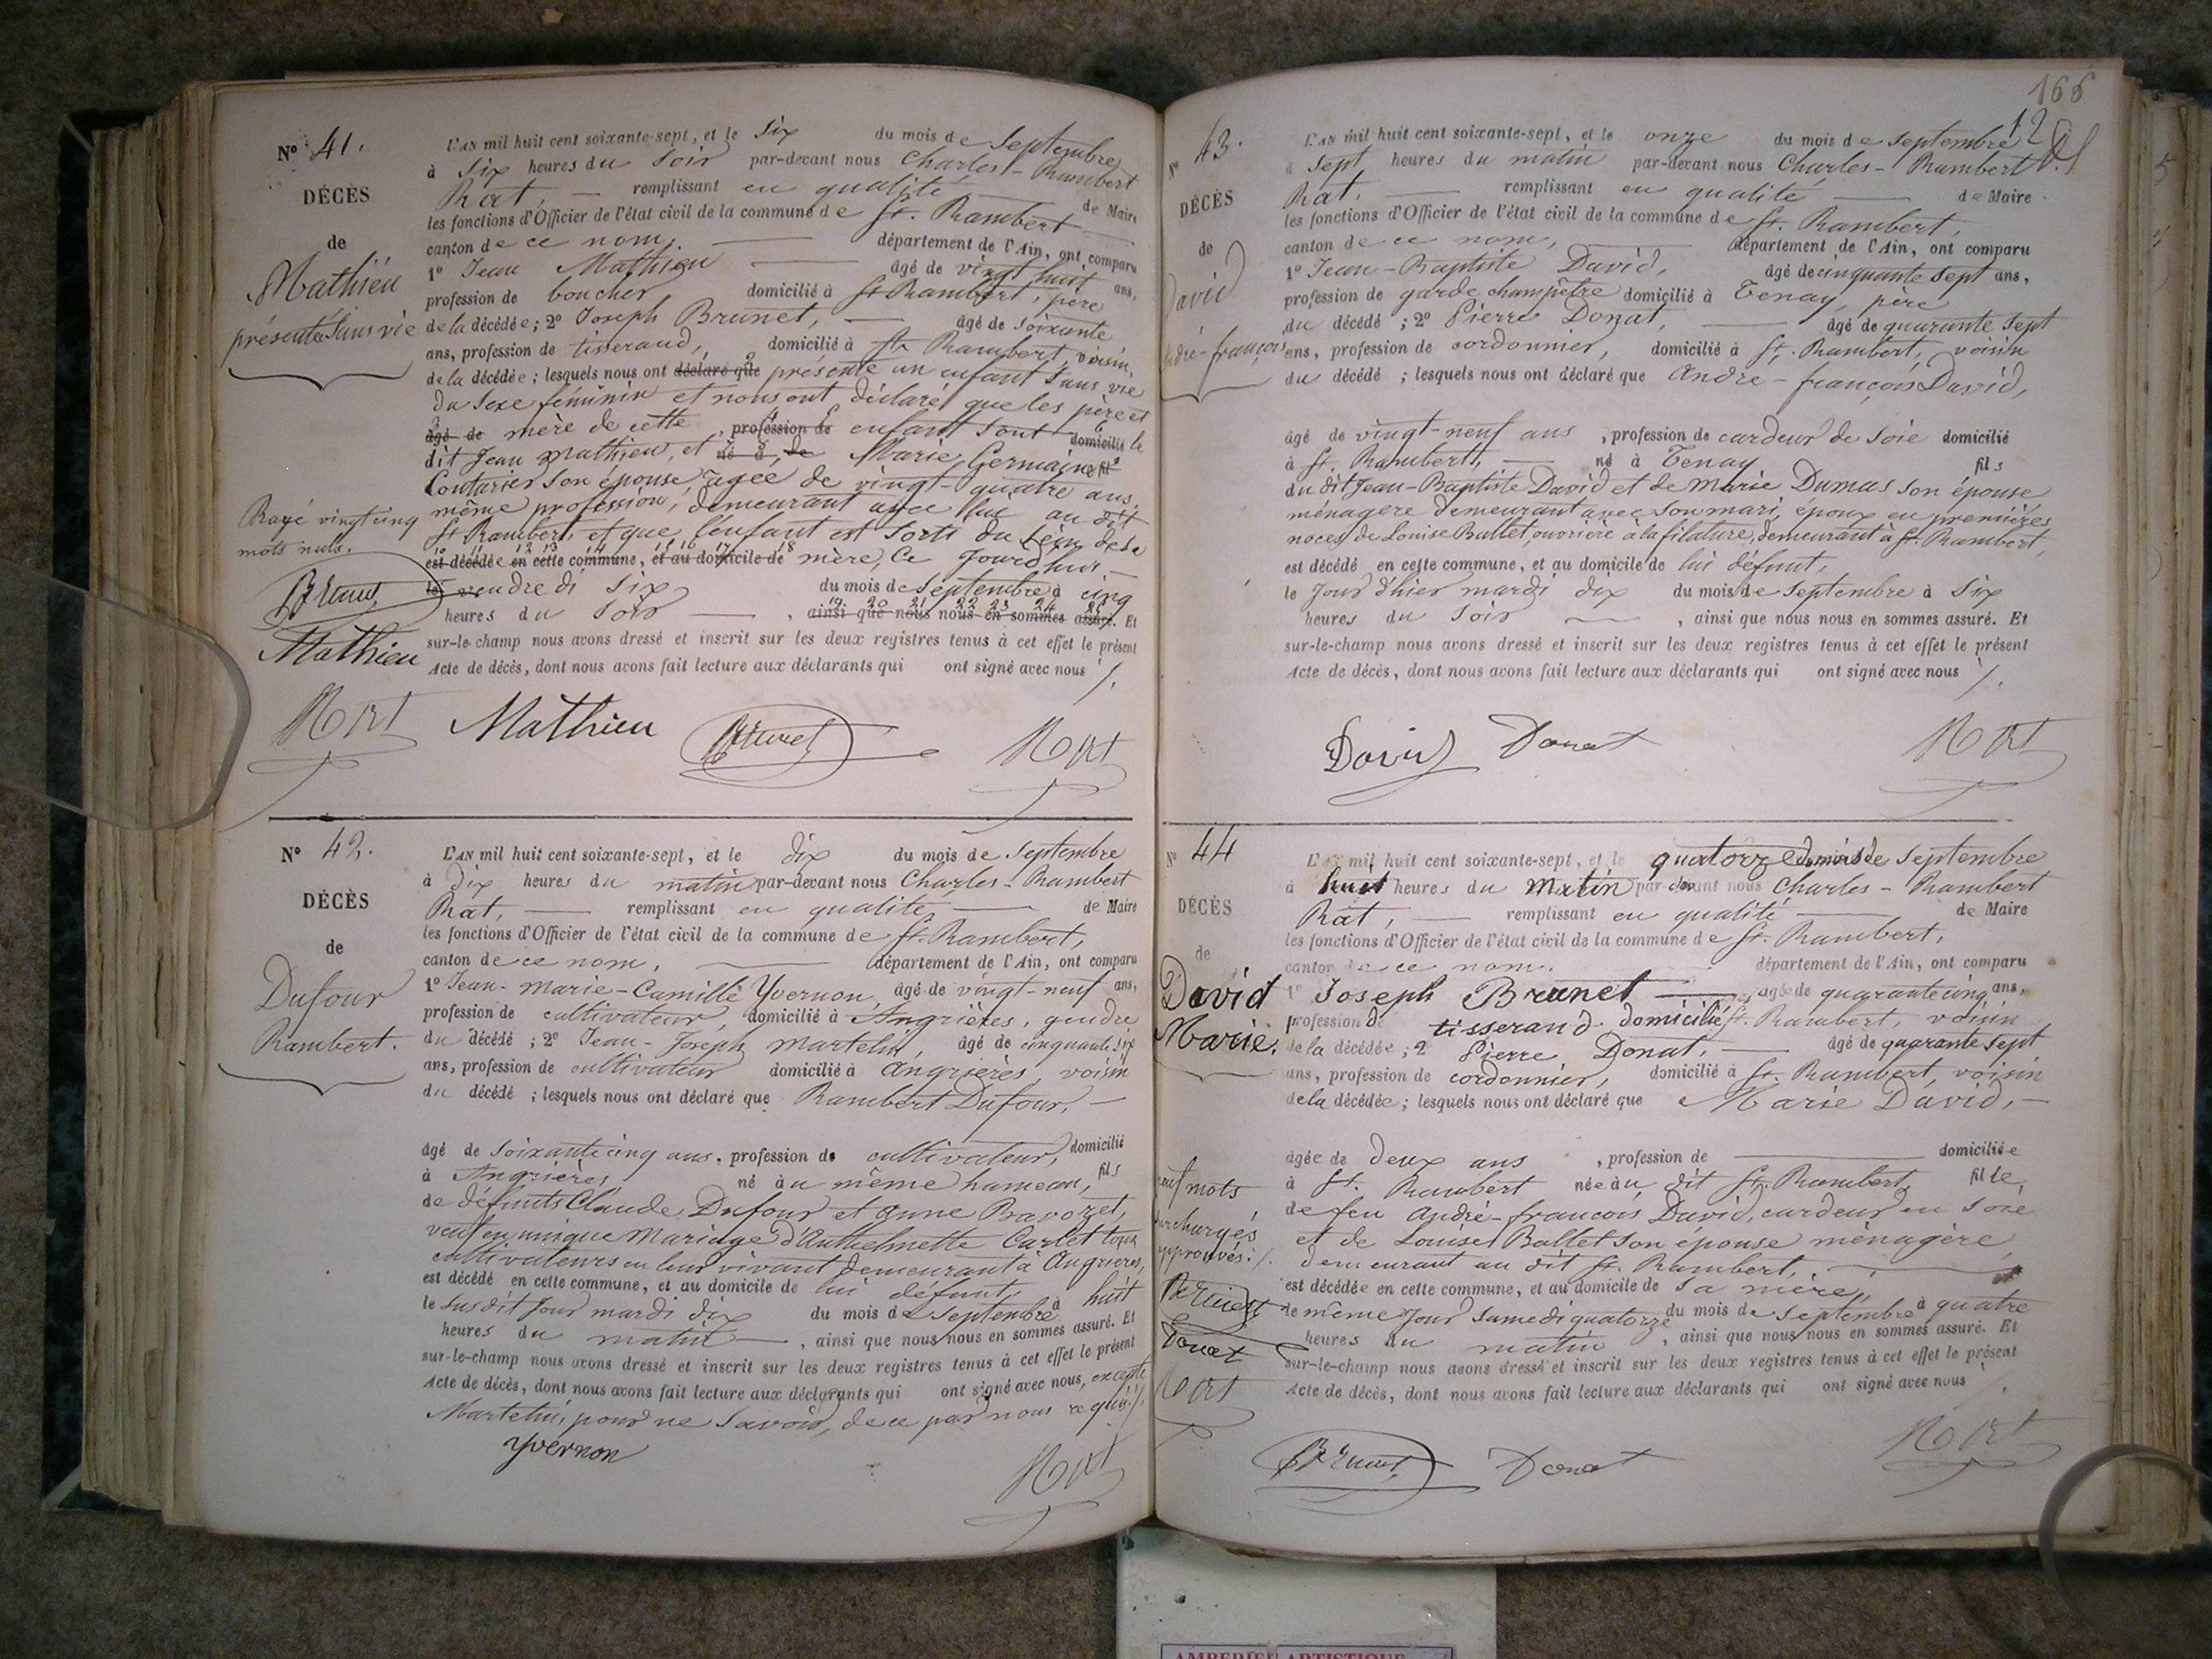 N° 41.
DÉCÈS
de
Mathieu
présentée sans vie
Rayé vingt cinq
mots nuls.
Brunet
Mathieu
Rat
L'AN mil huit cent soixante-sept, et le six du mois de Septembre
à six heures du soir par-devant nous Charles-Rambert
Rat, remplissant en qualité de Maire
les fonctions d'Officier de l'état civil de la commune de St. Rambert
canton de ce nom, département de l'Ain, ont comparu
1° Jean Mathieu âgé de vingt huit ans,
profession de boucher, domicilié à St Rambert, père
de la décédée; 2° Joseph Brunet, âgé de soixante
ans, profession de tisserand, domicilié à St. Rambert, voisin,
de la décédée; lesquels nous ont déclaré que présenté un enfant sans vie
du sexe féminin et nous ont déclaré que les père et
âgé de mère de cette profession de enfant sont domicilié le
dit Jean Mathieu, et né à de Marie Germaine fil
Contarier son épouse, âgée de vingt-quatre ans,
même profession, demeurant avec lui au dit
St Rambert, et que l'enfant est sorti du sein de sa
est décédée en cette commune, et au domicile de mère, ce jourd'hui
le vendredi six du mois de Septembre à cinq
heures du soir, ainsi que nous nous en sommes assuré. Et
sur-le-champ nous avons dressé et inscrit sur les deux registres tenus à cet effet le présent
Acte de décès, dont nous avons fait lecture aux déclarants qui ont signé avec nous /.
Mathieu Brunet Rat
N° 42.
DÉCÈS
de
Dufour
Rambert.
L'AN mil huit cent soixante-sept, et le dix du mois de Septembre
à dix heures du matin par-devant nous Charles-Rambert
Rat, remplissant en qualité de Maire
les fonctions d'Officier de l'état civil de la commune de St. Rambert,
canton de ce nom, département de l'Ain, ont comparu
1° Jean-Marie-Camille Yvernon, âgé de vingt-neuf ans,
profession de cultivateur, domicilié à Angrières, gendre
du décédé; 2° Jean-Joseph Martelin, âgé de cinquante six
ans, profession de cultivateur domicilié à Angrières, voisin
du décédé; lesquels nous ont déclaré que Rambert Dufour,
âgé de soixante cinq ans, profession de cultivateur, domicilié
à Angrières né au même hameau, fils
de défunts Claude Dufour et Anne Bavozet,
veuf en unique mariage d'Anthelmette Carlet tous
cultivateurs en leur vivant demeurant à Angrières,
est décédé en cette commune, et au domicile de lui défunt,
le susdit jour mardi dix du mois de Septembre à huit
heures du matin, ainsi que nous nous en sommes assuré. Et
sur-le-champ nous avons dressé et inscrit sur les deux registres tenus à cet effet le présent
Acte de décès, dont nous avons fait lecture aux déclarants qui ont signé avec nous, excepté
Martelin, pour ne savoir, de ce par nous requis /.
Yvernon Rat
166
12
N° 43.
DÉCÈS
de
David
André-françois
L'AN mil huit cent soixante-sept, et le onze du mois de Septembre
à sept heures du matin par-devant nous Charles-Rambert
Rat, remplissant en qualité de Maire
les fonctions d'Officier de l'état civil de la commune de St. Rambert,
canton de ce nom, département de l'Ain, ont comparu
1° Jean-Baptiste David, âgé de cinquante sept ans,
profession de garde champêtre domicilié à Tenay, père
du décédé; 2° Pierre Donat, âgé de quarante sept
ans, profession de cordonnier, domicilié à St. Rambert, voisin
du décédé; lesquels nous ont déclaré que André-françois David,
âgé de vingt-neuf ans, profession de cardeur de soie domicilié
à St. Rambert, né à Tenay fils
du dit Jean-Baptiste David et de Marie Dumas son épouse
ménagère demeurant avec son mari, époux en premières
noces de Louise Ballet, ouvrière à la filature, demeurant à St. Rambert,
est décédé en cette commune, et au domicile de lui défunt,
le jour d'hier mardi dix du mois de Septembre à six
heures du soir, ainsi que nous nous en sommes assuré. Et
sur-le-champ nous avons dressé et inscrit sur les deux registres tenus à cet effet le présent
Acte de décès, dont nous avons fait lecture aux déclarants qui ont signé avec nous /.
David Donat Rat
N° 44
DÉCÈS
de
David
Marie.
neuf mots
surchargés
approuvés /.
Brunet
Donat
Rat
L'AN mil huit cent soixante-sept, et le quatorze du mois de Septembre
à huit heures du matin par-devant nous Charles-Rambert
Rat, remplissant en qualité de Maire
les fonctions d'Officier de l'état civil de la commune de St. Rambert,
canton de ce nom, département de l'Ain, ont comparu
1° Joseph Brunet âgé de quarante cinq ans,
profession de tisserand domicilié St. Rambert, voisin
de la décédée; 2° Pierre Donat, âgé de quarante sept
ans, profession de cordonnier, domicilié à St. Rambert, voisin
de la décédée; lesquels nous ont déclaré que Marie David,
âgée de deux ans, profession de domiciliée
à St. Rambert née au dit St. Rambert, fille
de feu André-françois David, cardeur en soie
et de Louise Ballet son épouse ménagère
demeurant au dit St. Rambert,
est décédée en cette commune, et au domicile de sa mère,
le même jour samedi quatorze du mois de Septembre à quatre
heures du matin, ainsi que nous nous en sommes assuré. Et
sur-le-champ nous avons dressé et inscrit sur les deux registres tenus à cet effet le présent
Acte de décès, dont nous avons fait lecture aux déclarants qui ont signé avec nous /.
Brunet Donat Rat
AMBERIEU ARTISTIQUE